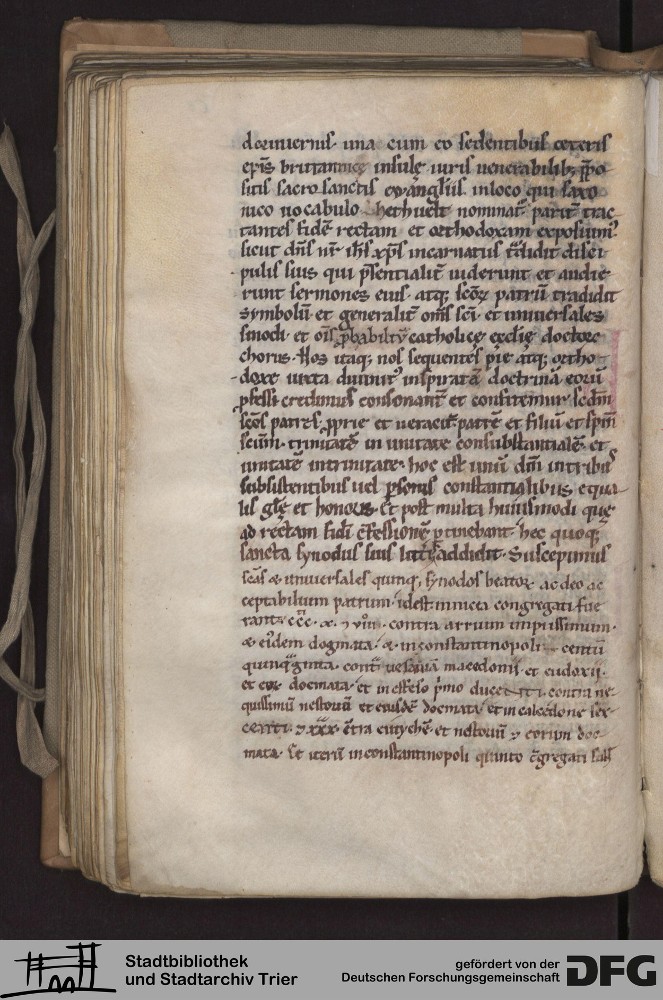 docuvernis. una cum eo sedentibus ceteris
ep̄is bruttannice insulę viris venerabilib; ꝓpo
sitis sacro sanctis evangliis. inloco qui saxo
nico vocabulo hethuelt nominat̄. parit̄ trac
tantes fidē rectam et orthodoxam exposuim᷒.
sicut dn̄s nr̄ ih̄s xp̄s incarnatus t̄didit disci
pulis suis qui p̄sentialit̄ viderunt et audie
runt sermones eius. atq; sc̄oꝝ patrū tradidit
symbolū et generalit̄ om̄s sc̄i. et universales
sinodi. et om̄s ꝓbabiliū catholicę eccl̄ię doctorū
chorus. Nos itaq; nos sequentes pie atq; ortho
doxe iuxta divinit᷒ inspiratā doctrinā eorū
ꝓfessi credimus consonant̄ et confitemur. scdm̄
sc̄os patres. ꝓprie et veracit̄ patrē et filiū et sp̄m
sc̄um. trinitatē in unitate consubstantialē. et
unitatē intrinitate. hoc est unū dm̄ intribus
subsistentibus vel ꝑsonis constantialibus equa
lis gl̄ę et honoris. Et post multa huiusmodi quę
ad rectam fidī c̄fessionē ꝑtinebant. hec quoq;
sancta synodus suis litt̄is addidit. Suscepimus
sc̄as & universales quinq; synodos beatoꝝ ac deo ac
ceptabilium patrum. idest. innicea congregati fue
rant. ccc. x. 7 viii. contra arrium impiissimum.
& eiꝰdem dogmata. & inconstantinopoli centū
quinquaginta. cont̄ vesaniā macedonii. et eudoxii.
et eoꝝ docmata. et in effeso p̄mo ducenti. contra ne
quissimū nestoriū et eiusdē docmata. et in calcedone sex
centi. 7 xxx. c̄tra eutychē. et nestoriū 7 eorum doc
mata. Et iterū inconstantinopoli quinto c̄gregati sunt
Stadtbibliothek
und Stadtarchiv Trier
gefördert von der
Deutschen Forschungsgemeinschaft
DFG